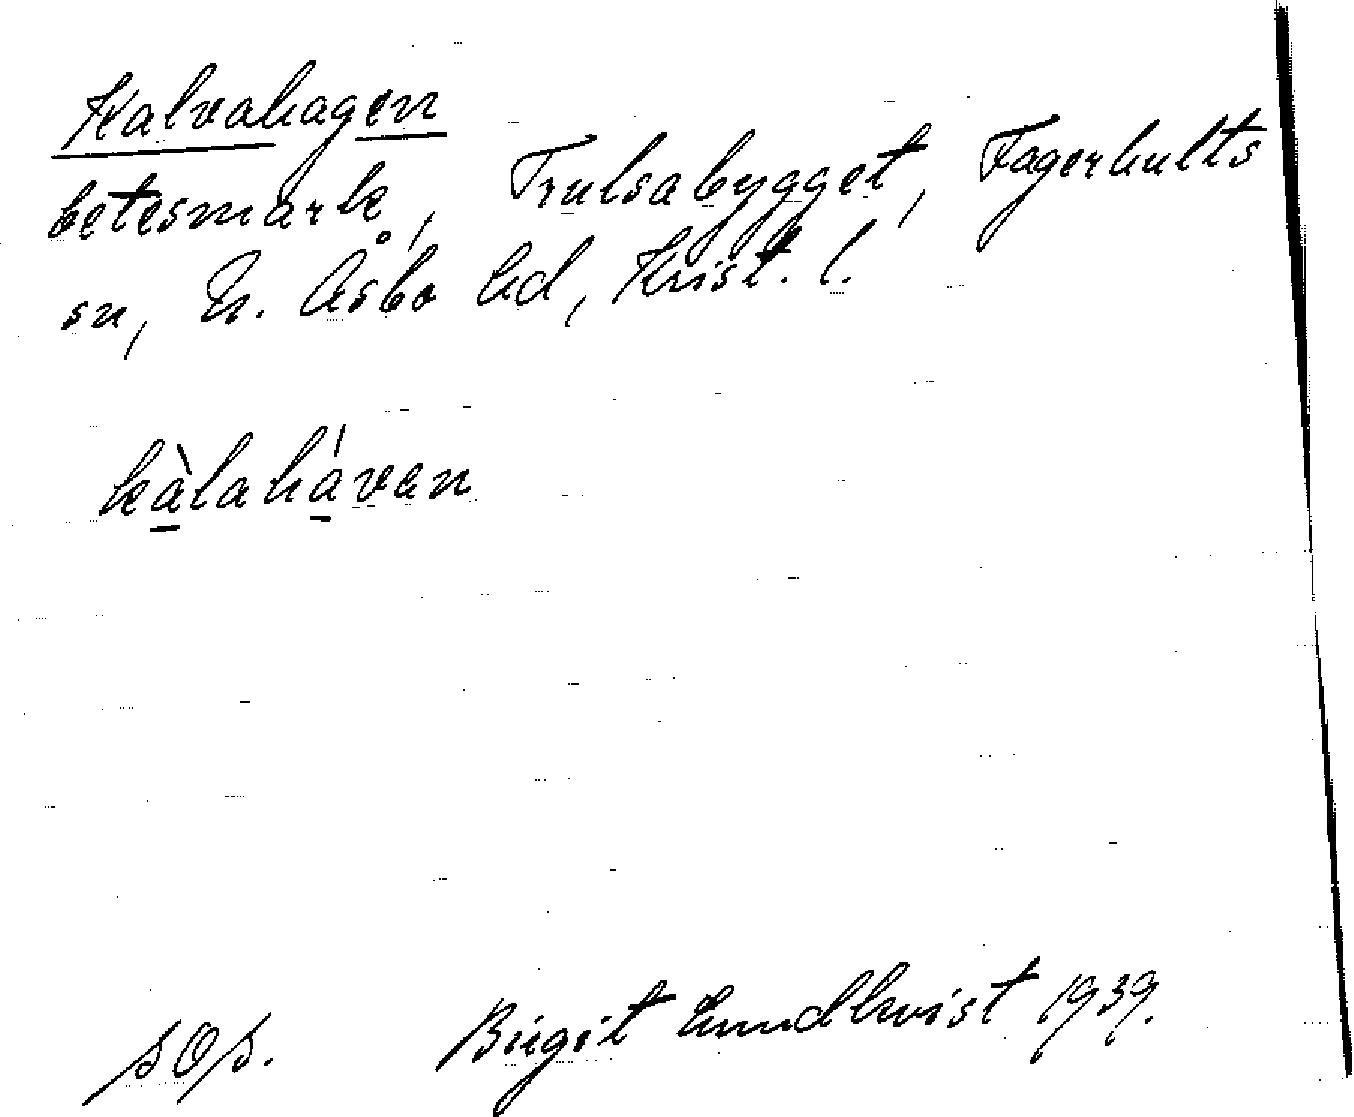 Kalvahagen
betesmark, Trulsabygget, Fagerhults
sn, N. Åsbo hd, Krist. l.
kàlahávan
Birgit Lundkvist 1939.